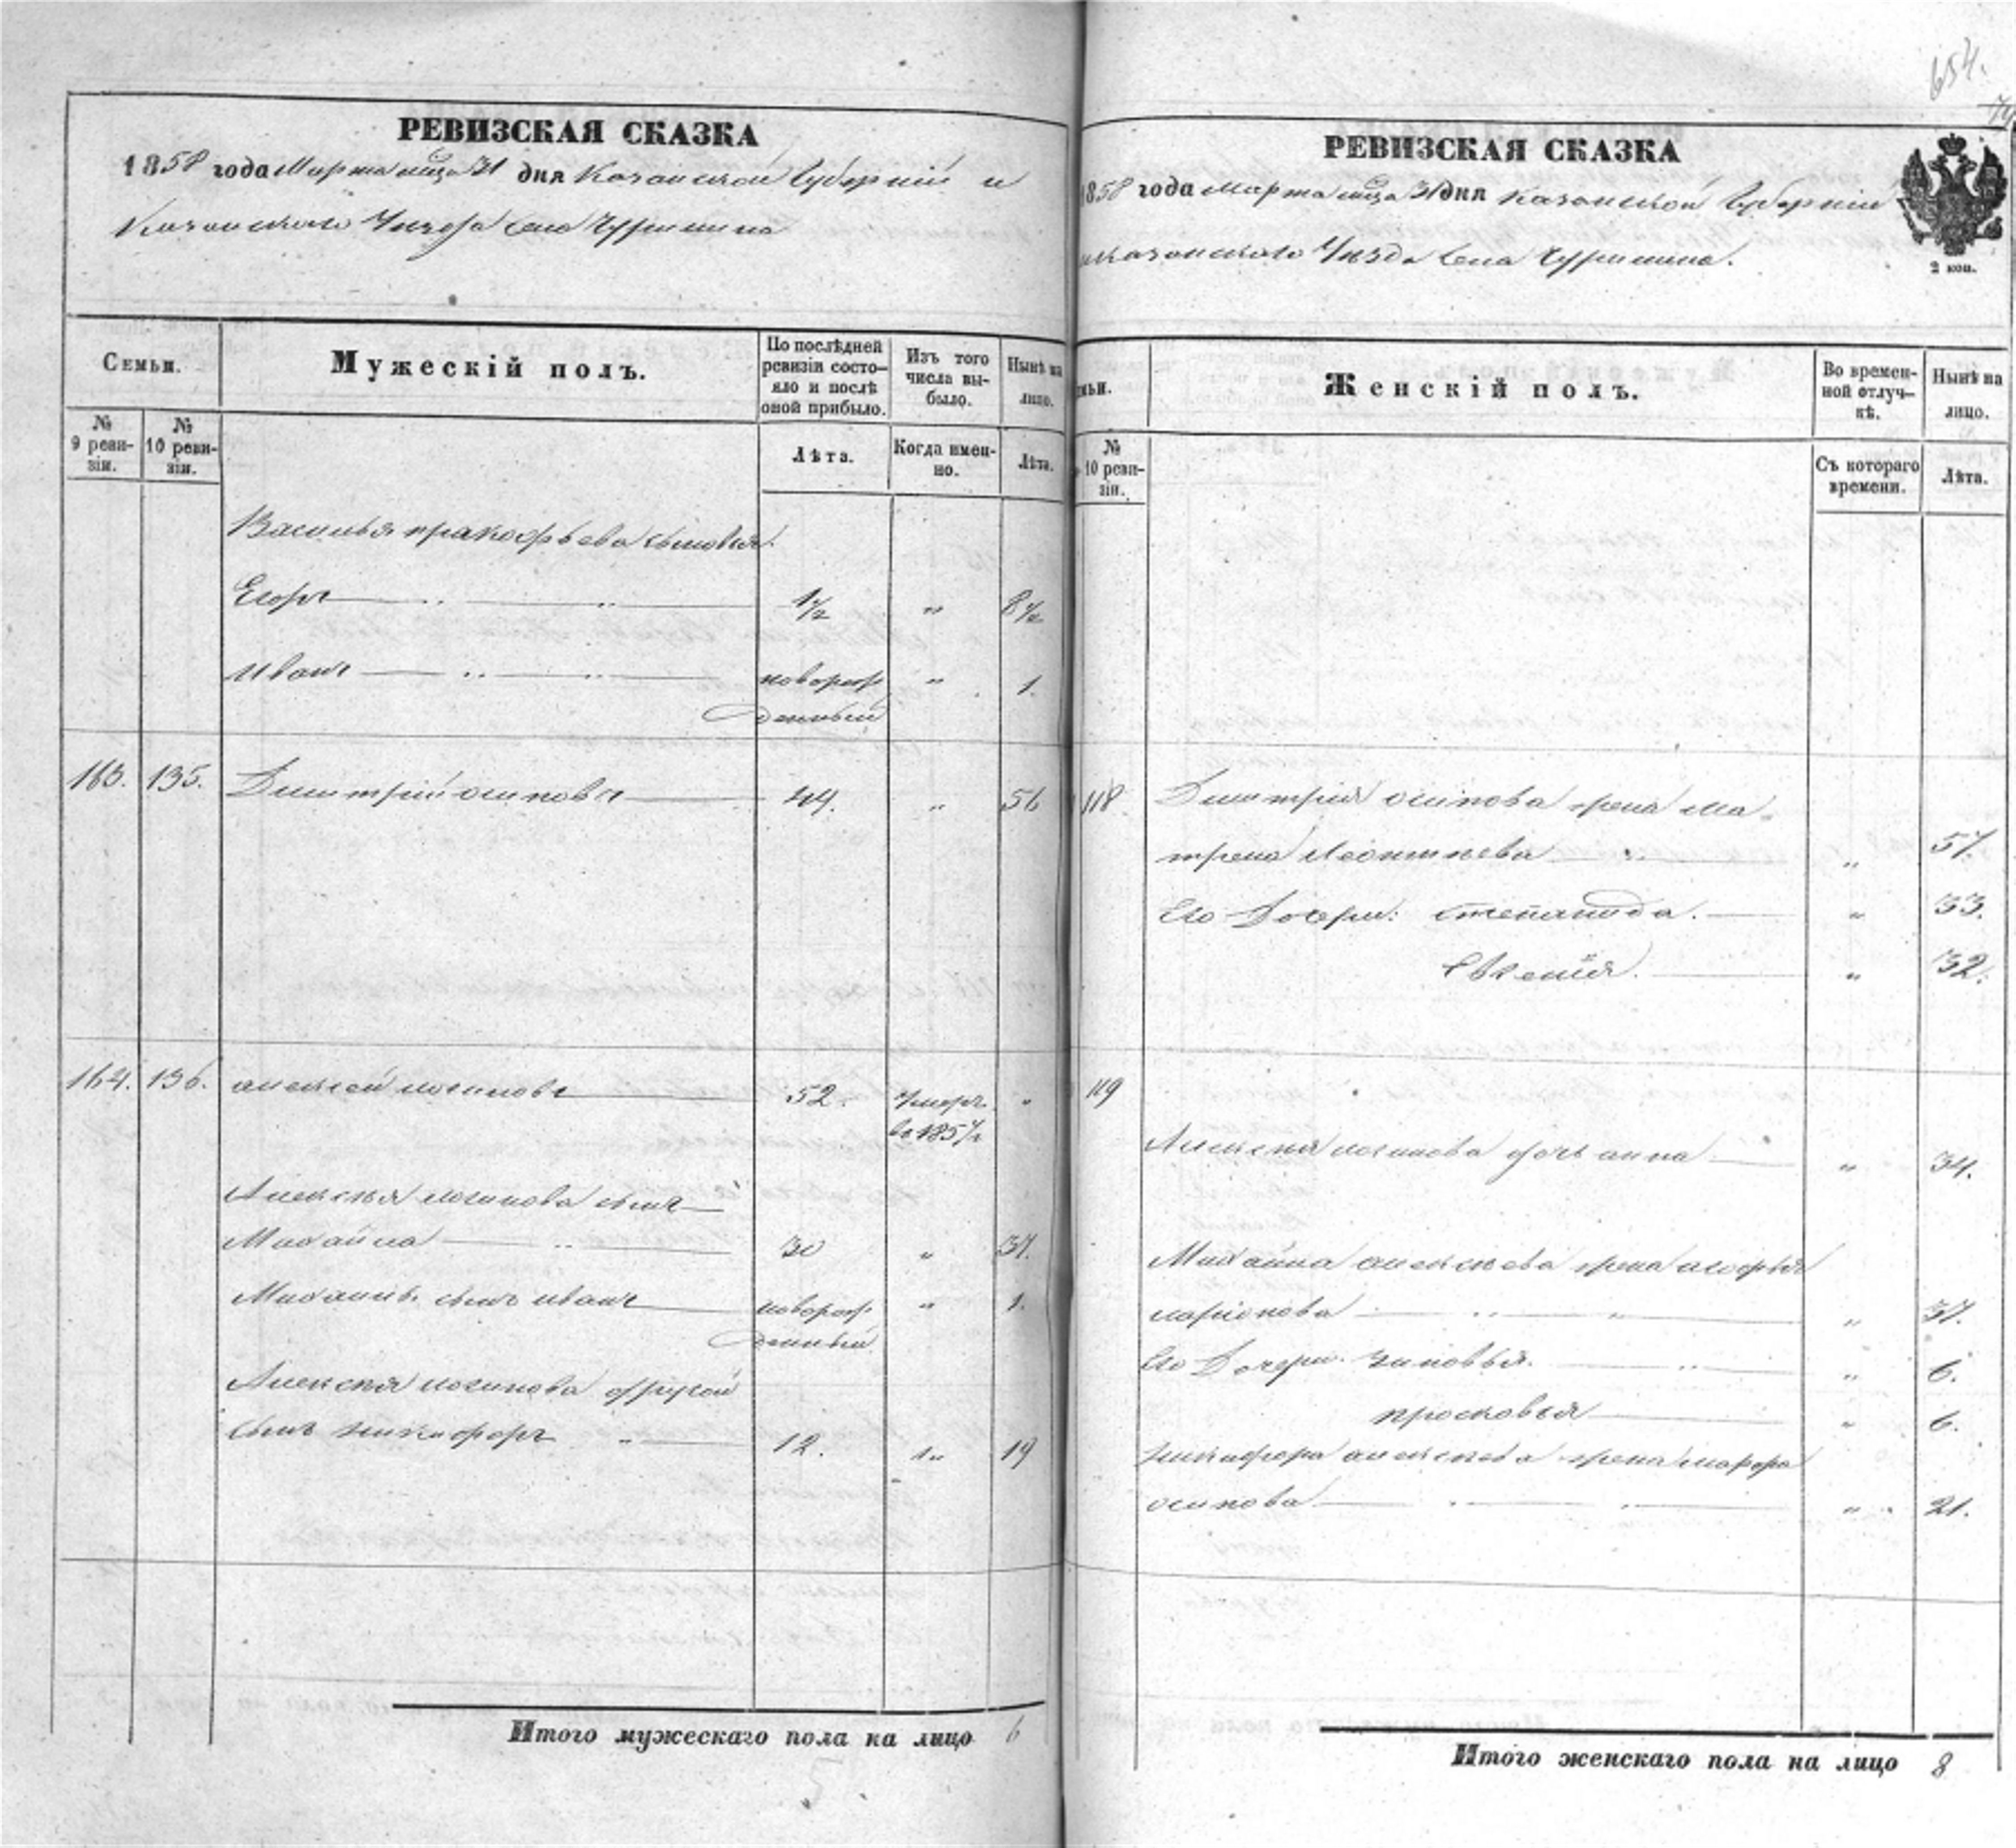 654.
РЕВИЗСКАЯ СКАЗКА
1858 года Марта мца 31 дня Казанской Губерніи и
Казанского Уезда Села
Семьи.
Мужескій полъ.
По послѣдней ревизіи состо-
яло и послѣ
оной прибыло.
Изъ того
числа вы-
было.
Нынѣ на
лицо.
№
9 реви-
зіи.
№
10 реви-
зіи.
Лѣта.
Когда имен-
но.
Лѣта.
Василья пракофьева сыновья.
Егоръ 1/2 " 8 1/2
Иванъ новорож " 1.
денный
163. 135. Димитрій осиповъ 49. " 56
164. 136. алексей логиновъ 52. умеръ "
въ 1857
Алексея логинова сынъ
Михайла 30 " 37.
Михаилы сынъ иванъ новорож " 1.
денный
Алексея логинова другой
сынъ никифоръ " 12. " 19
Итого мужескаго пола на лицо 6
РЕВИЗСКАЯ СКАЗКА
1858 года марта мца 31 дня казанской Губерніи
и казанского Уезда Села
2 коп.
мьи.
Женскій полъ.
Во времен-
ной отлуч-
кѣ.
Нынѣ на
лицо.
№
10 реви-
зіи.
Съ котораго
времени.
Лѣта.
118. Димитрия осипова жена Ма-
трена Леонтиева " 57.
Его Дочери: степанида. " 33.
Евгенія. " 32.
119
Алексея логинова дочь анна " 34.
Михайла алексеева жена агофья
ларіонова " 37.
Его Дочери. зиновья. " 6.
просковья " 6.
никифора алексеева жена марфа
осипова " 21.
Итого женскаго пола на лицо 8